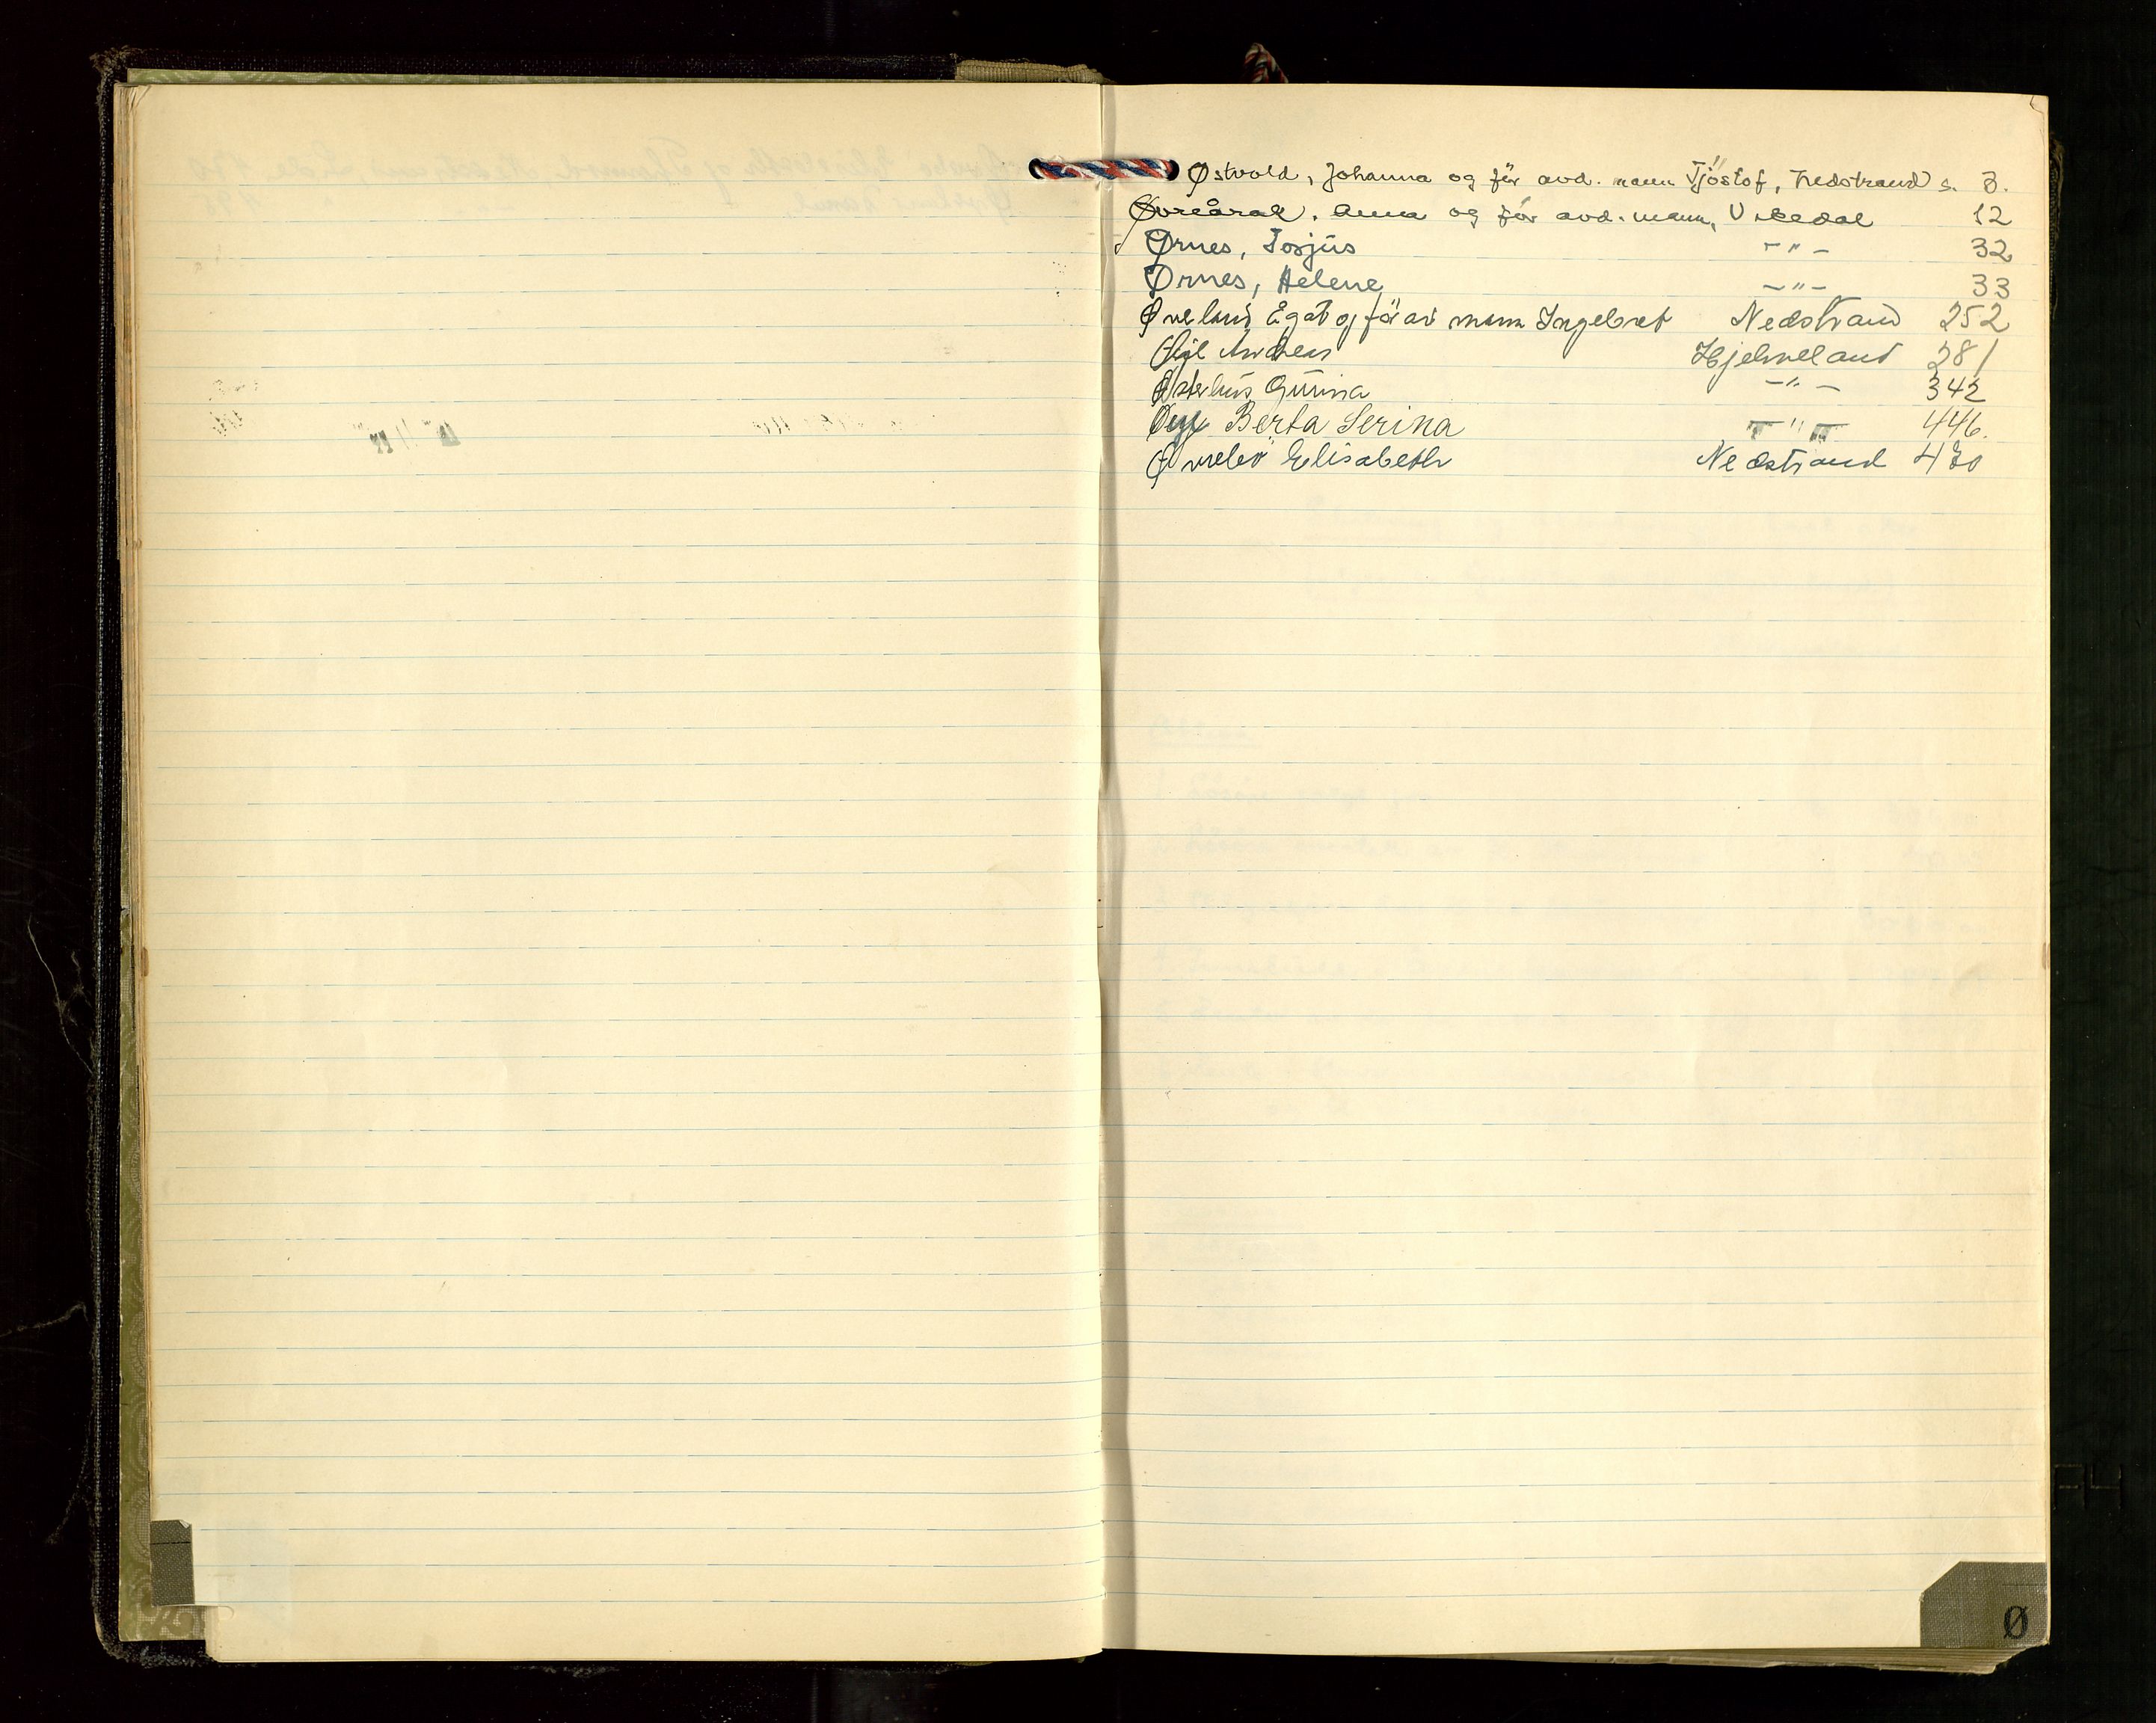 Østvold, Johanna og før avd. mann Tjöstof, Nedstrand s. 3.
Øvreåral. Anna og før avd. mann, Vikedal 12
Ørnes, Torjüs -"- 32
Ørnes, Helene -"- 33
Øveland Ågat og før av mann Ingebret Nedstrand 252
Andreas Hjelmeland 281
Østerhüs Gürina -"- 342
Øye Berta Serina -"- 446.
Elisabeth Nedstrand 470
Ø